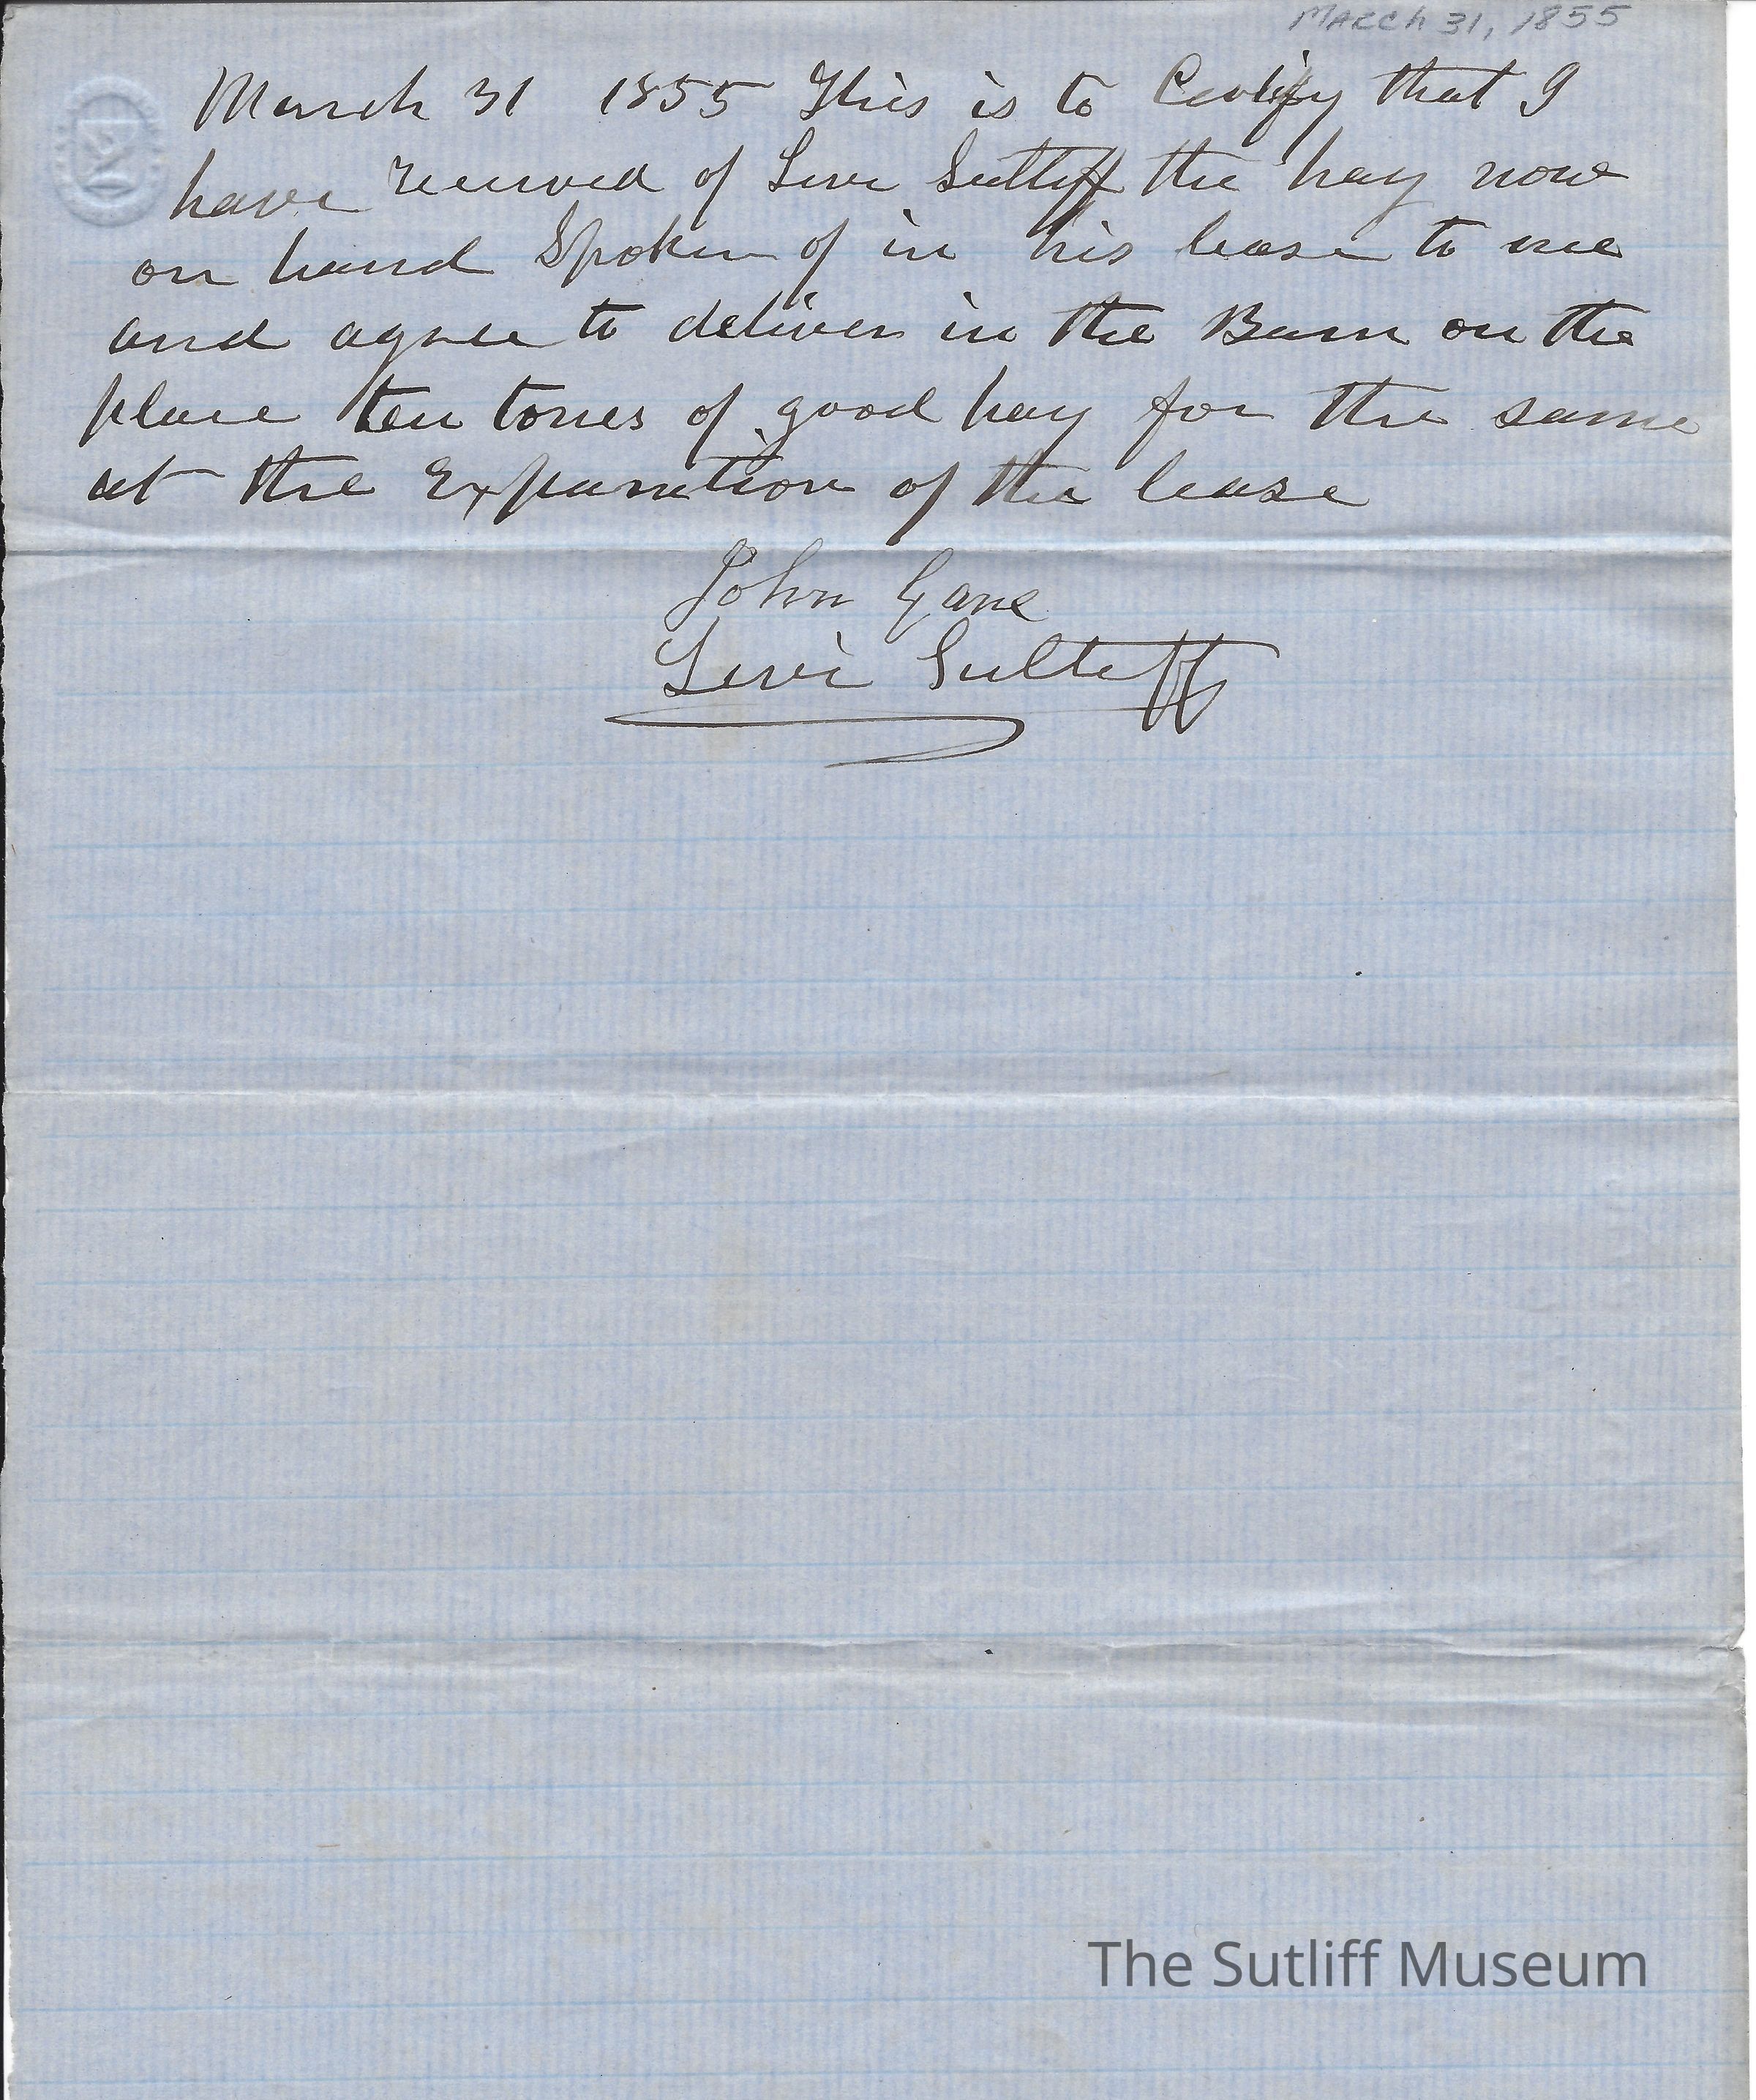 MARCH 31, 1855
March 31 1855 This is to Certify that I
have received of Levi Sutliff the hay now
on hand Spoken of in his lease to me
and agree to deliver in the Barn on the
place ten tones of good hay for the same
at the Expiration of the lease
John Gane
Levi Sutliff
The Sutliff Museum